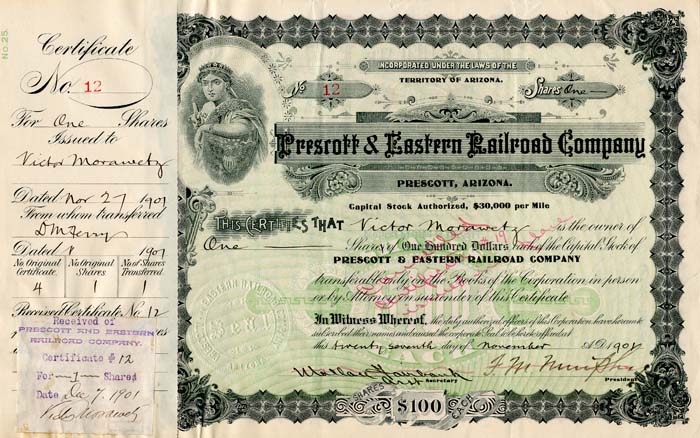 No. 25.
Certificate
No. 12
For One Shares
Issued to
Victor Morawetz
Dated Nov 27 1901
From whom transferred
D M Ferry
Dated 1901
No Original Certificate. No Original Shares No of Shares Transferred.
4 1 1
Received Certificate No. 12
Received of
PRESCOTT AND EASTERN
RAILROAD COMPANY.
Certificate # 12
For —1— Shares
Date Dec 7, 1901
Victor Morawetz
INCORPORATED UNDER THE LAWS OF THE
TERRITORY OF ARIZONA.
No 12
Shares One
Prescott & Eastern Railroad Company
PRESCOTT, ARIZONA.
Capital Stock Authorized, $30,000 per Mile
THIS CERTIFIES THAT Victor Morawetz is the owner of
One Shares of One Hundred Dollars each of the Capital Stock of
PRESCOTT & EASTERN RAILROAD COMPANY
transferable only on the Books of the Corporation in person
or by Attorney on surrender of this Certificate.
In Witness Whereof, the duly authorized officers of this Corporation have hereunto
subscribed their names and caused the corporate Seal to be hereto affixed
this twenty seventh day of November A.D. 1901
Asst Secretary
President
SHARES $100 EACH